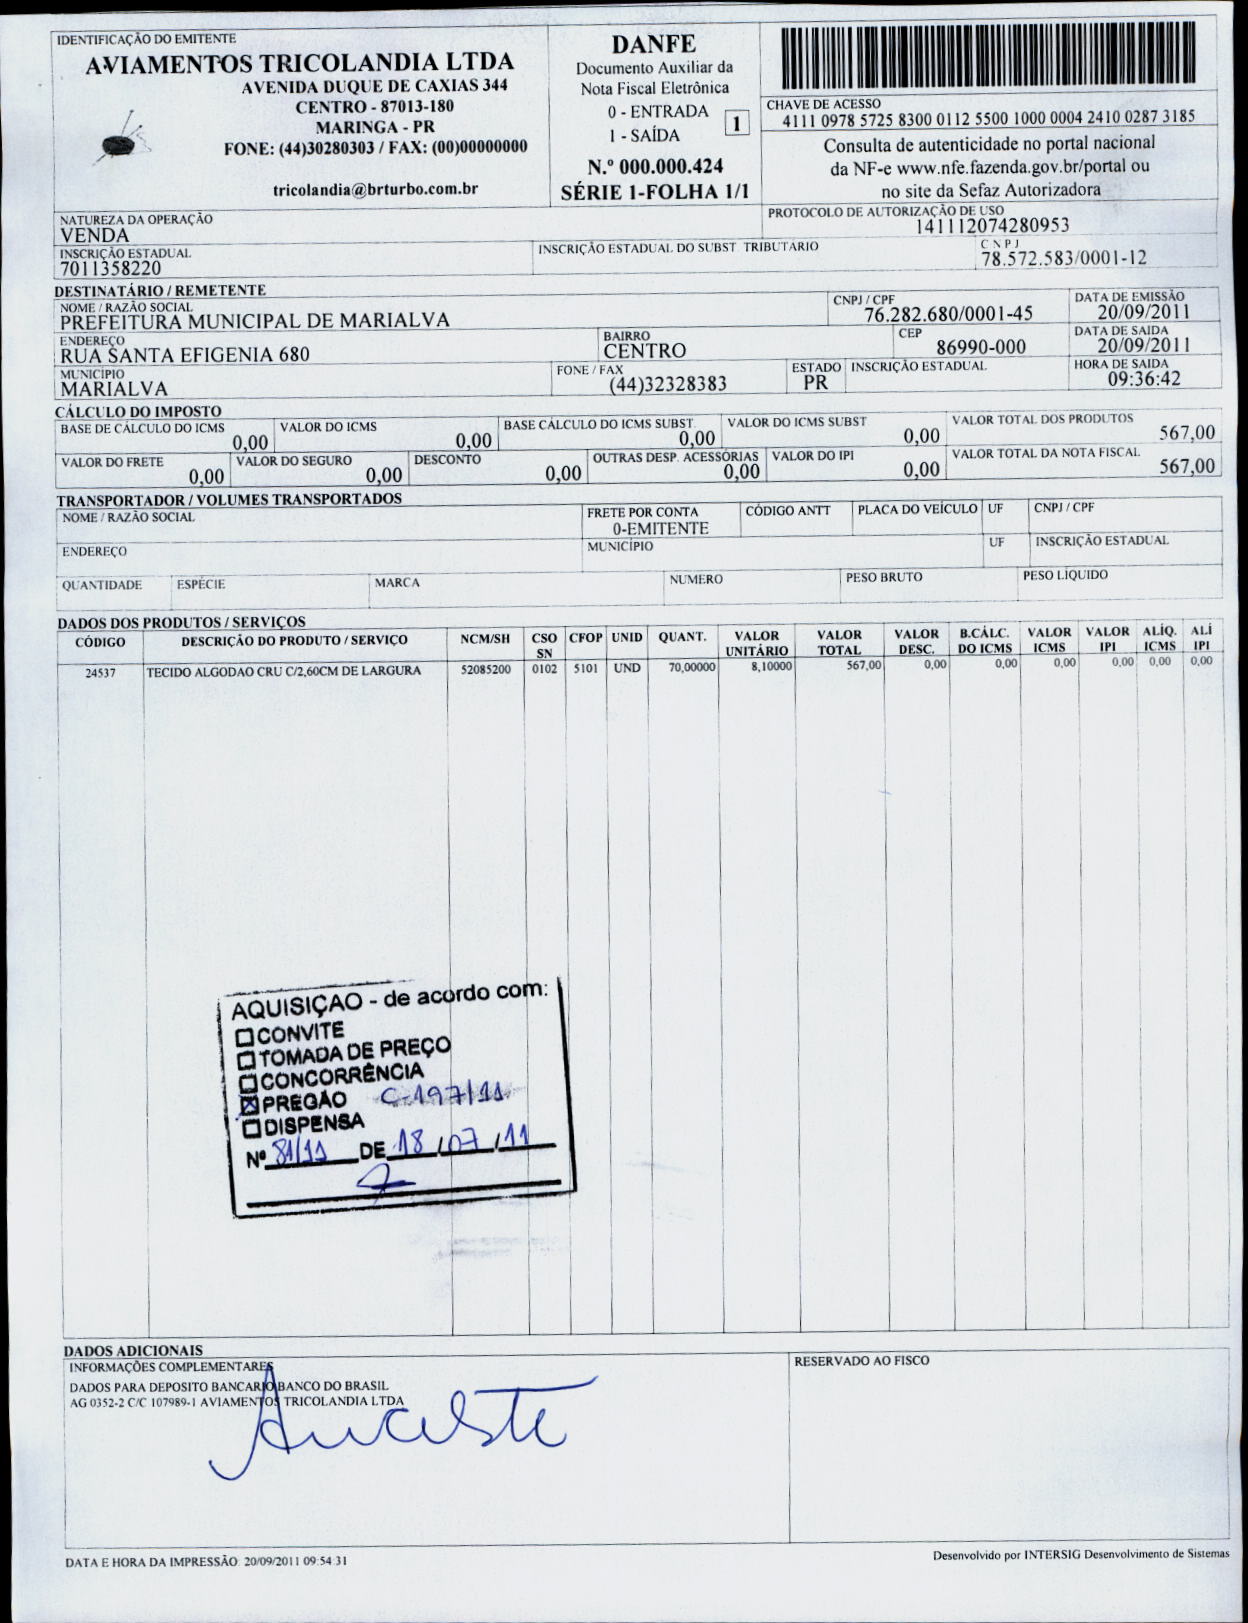 IDENTIFICAÇÃO DO EMITENTE
AVIAMENTOS TRICOLANDIA LTDA
AVENIDA DUQUE DE CAXIAS 344
CENTRO - 87013-180
MARINGA - PR
FONE: (44)30280303 / FAX: (00)00000000
tricolandia@brturbo.com.br
DANFE
Documento Auxiliar da
Nota Fiscal Eletrônica
0 - ENTRADA
1 - SAÍDA
1
N.º 000.000.424
SÉRIE 1-FOLHA 1/1
CHAVE DE ACESSO
4111 0978 5725 8300 0112 5500 1000 0004 2410 0287 3185
Consulta de autenticidade no portal nacional
da NF-e www.nfe.fazenda.gov.br/portal ou
no site da Sefaz Autorizadora
NATUREZA DA OPERAÇÃO
VENDA
PROTOCOLO DE AUTORIZAÇÃO DE USO
141112074280953
INSCRIÇÃO ESTADUAL
7011358220
INSCRIÇÃO ESTADUAL DO SUBST. TRIBUTÁRIO
C N P J
78.572.583/0001-12
DESTINATÁRIO / REMETENTE
NOME / RAZÃO SOCIAL
PREFEITURA MUNICIPAL DE MARIALVA
CNPJ / CPF
76.282.680/0001-45
DATA DE EMISSÃO
20/09/2011
ENDEREÇO
RUA SANTA EFIGENIA 680
BAIRRO
CENTRO
CEP
86990-000
DATA DE SAIDA
20/09/2011
MUNICÍPIO
MARIALVA
FONE / FAX
(44)32328383
ESTADO
PR
INSCRIÇÃO ESTADUAL
HORA DE SAIDA
09:36:42
CÁLCULO DO IMPOSTO
BASE DE CÁLCULO DO ICMS
0,00
VALOR DO ICMS
0,00
BASE CÁLCULO DO ICMS SUBST.
0,00
VALOR DO ICMS SUBST
0,00
VALOR TOTAL DOS PRODUTOS
567,00
VALOR DO FRETE
0,00
VALOR DO SEGURO
0,00
DESCONTO
0,00
OUTRAS DESP. ACESSÓRIAS
0,00
VALOR DO IPI
0,00
VALOR TOTAL DA NOTA FISCAL
567,00
TRANSPORTADOR / VOLUMES TRANSPORTADOS
NOME / RAZÃO SOCIAL
FRETE POR CONTA
0-EMITENTE
CÓDIGO ANTT
PLACA DO VEÍCULO
UF
CNPJ / CPF
ENDEREÇO
MUNICÍPIO
UF
INSCRIÇÃO ESTADUAL
QUANTIDADE
ESPÉCIE
MARCA
NUMERO
PESO BRUTO
PESO LÍQUIDO
DADOS DOS PRODUTOS / SERVIÇOS
CÓDIGO DESCRIÇÃO DO PRODUTO / SERVIÇO NCM/SH CSO SN CFOP UNID QUANT. VALOR UNITÁRIO VALOR TOTAL VALOR DESC. B.CÁLC. DO ICMS VALOR ICMS VALOR IPI ALÍQ. ICMS ALÍ IPI
24537 TECIDO ALGODAO CRU C/2,60CM DE LARGURA 52085200 0102 5101 UND 70,00000 8,10000 567,00 0,00 0,00 0,00 0,00 0,00 0,00
AQUISIÇAO - de acordo com:
CONVITE
TOMADA DE PREÇO
CONCORRÊNCIA
PREGÃO C-197/11
DISPENSA
Nº 81/11 DE 18/07/11
DADOS ADICIONAIS
INFORMAÇÕES COMPLEMENTARES
DADOS PARA DEPOSITO BANCARIO BANCO DO BRASIL
AG 0352-2 C/C 107989-1 AVIAMENTOS TRICOLANDIA LTDA
RESERVADO AO FISCO
DATA E HORA DA IMPRESSÃO: 20/09/2011 09:54:31
Desenvolvido por INTERSIG Desenvolvimento de Sistemas